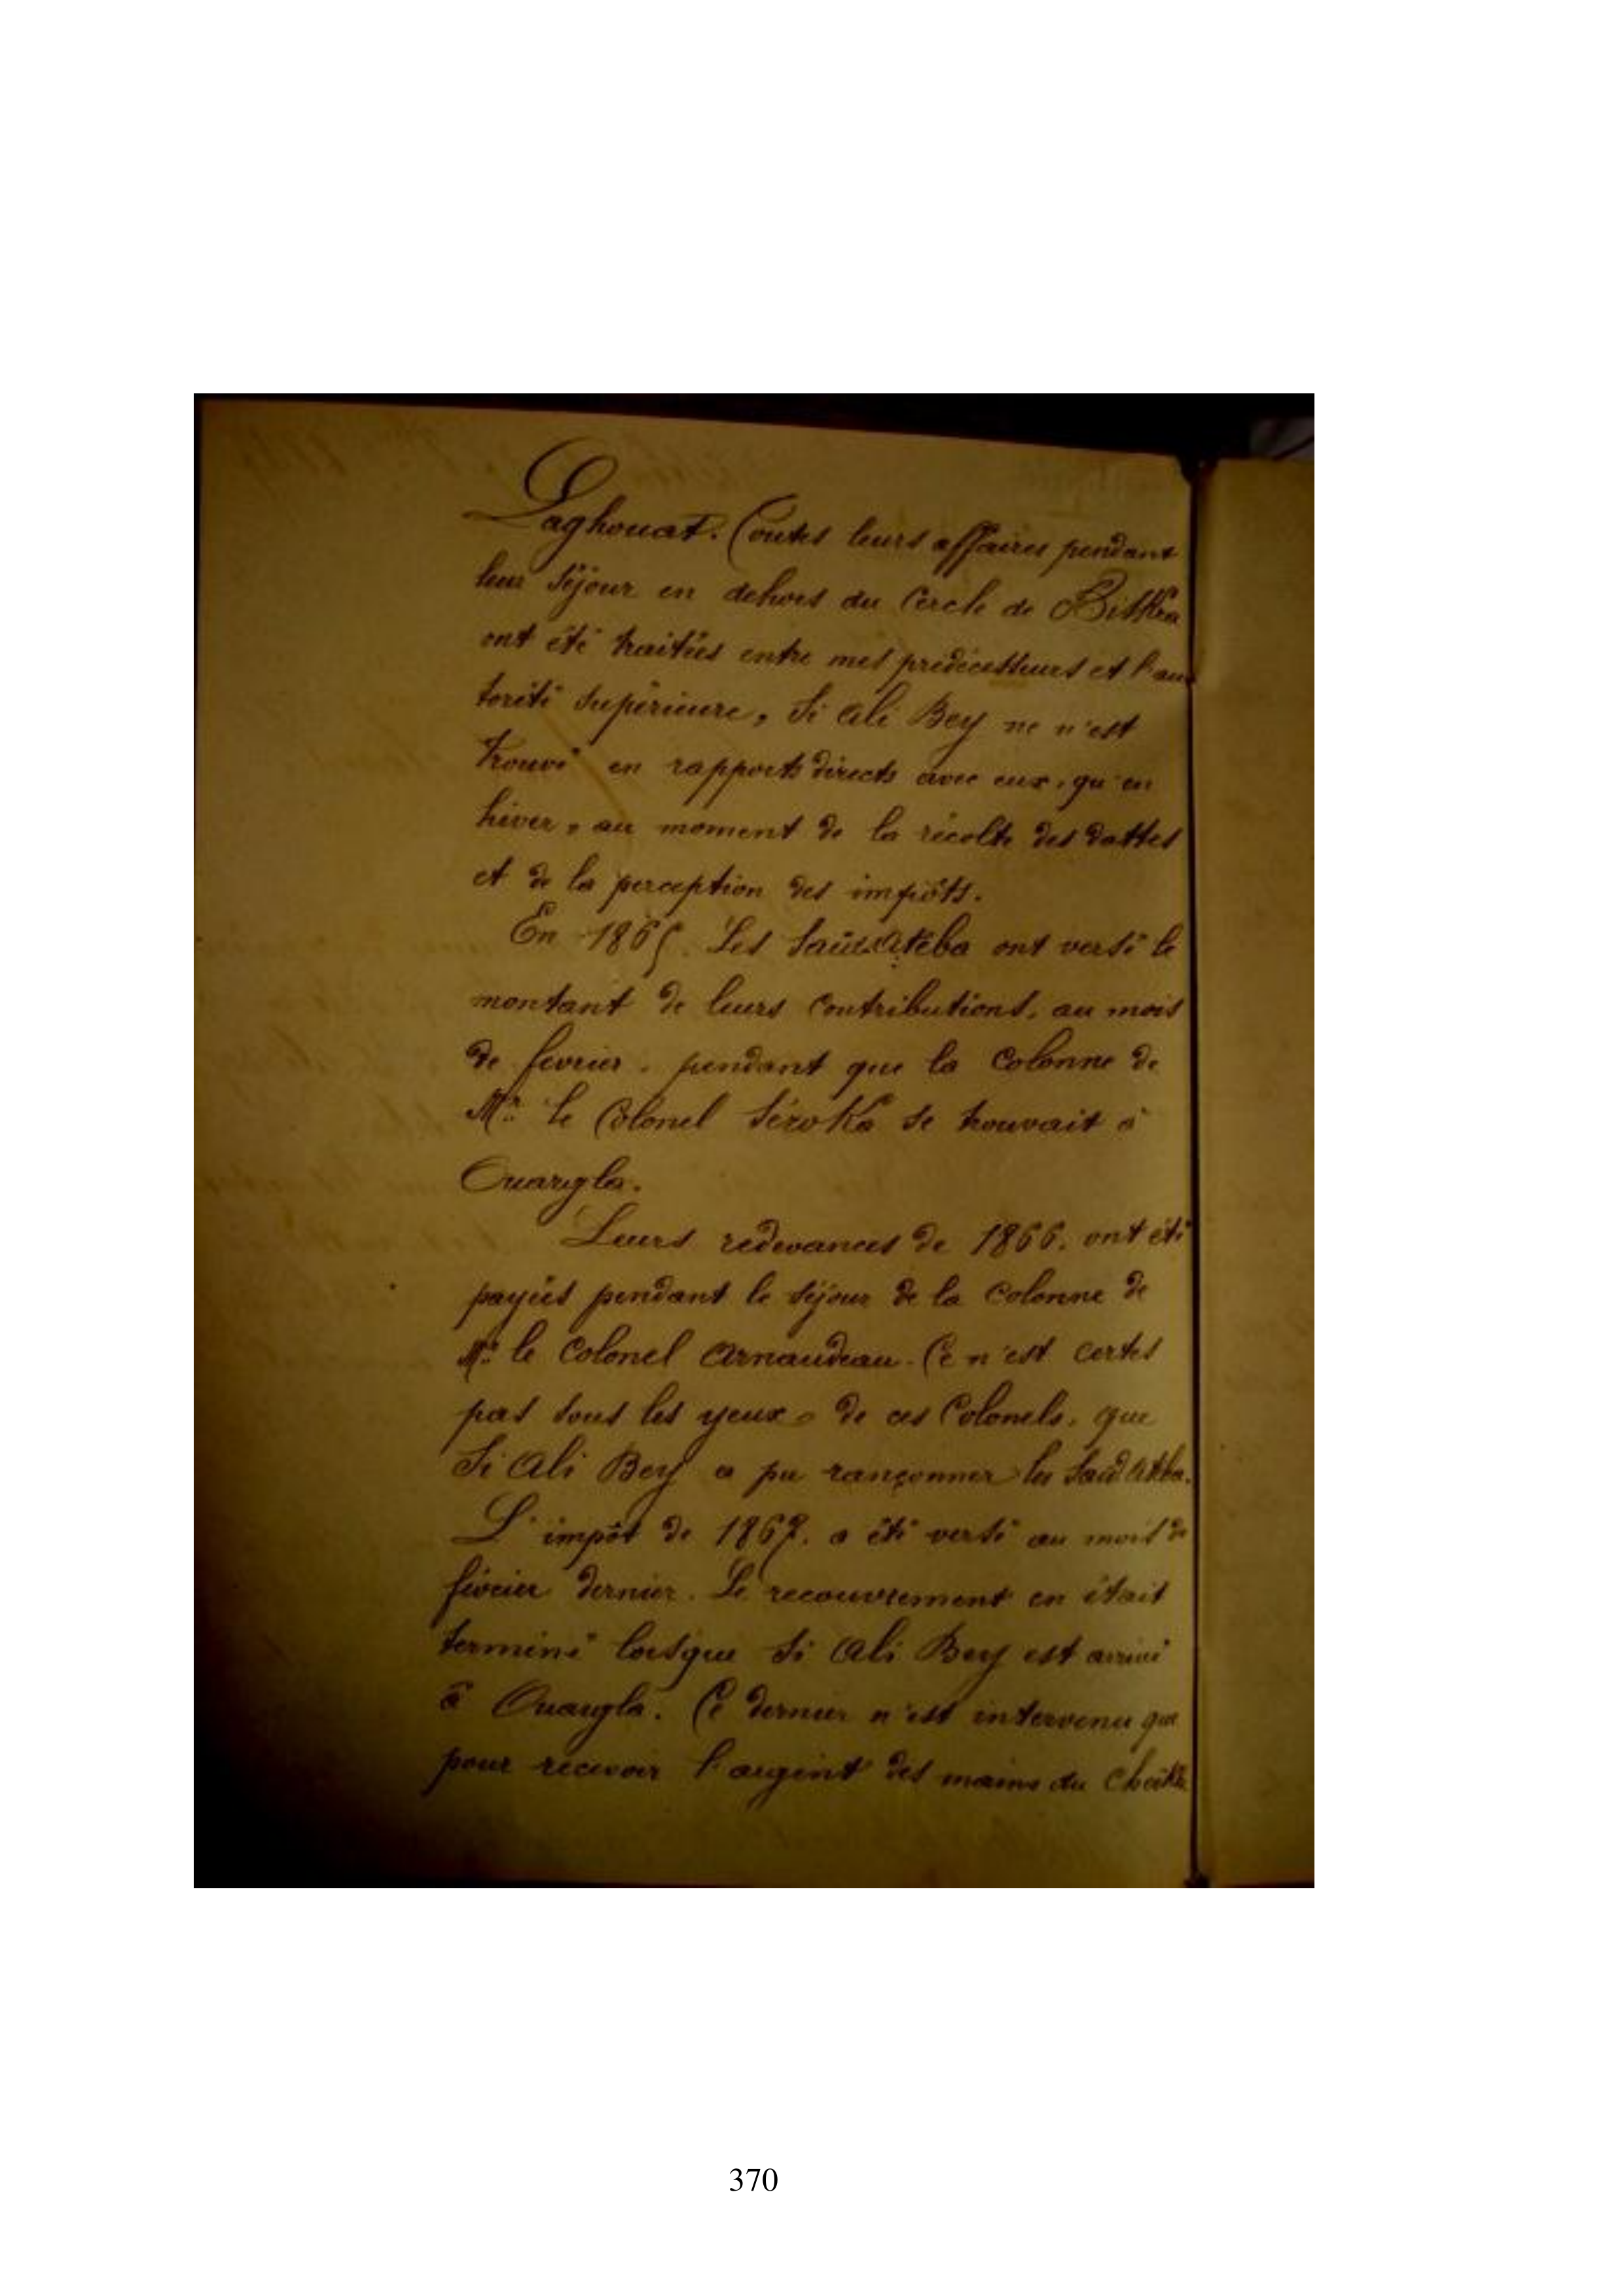 Laghouat. Toutes leurs affaires pendant
leur séjour en dehors du Cercle de Biskra
ont été traitées entre mes prédécesseurs et l'au
torité supérieure, Si Ali Bey ne n'est
trouvé en rapports directs avec eux, qu'en
hiver, au moment de la récolte des dattes
et de la perception des impôts.
En 1865. Les Saïd Atéba ont versé le
montant de leurs contributions, au mois
de fevrier, pendant que la Colonne de
Mr. le Colonel Séroka se trouvait à
Ouargla.
Leurs redevances de 1866. ont été
payées pendant le séjour de la Colonne de
Mr. le Colonel Arnaudeau. Ce n'est certes
pas sous les yeux de ces Colonels, que
Si Ali Bey a pu rançonner les Saïd Atba.
L'impôt de 1867. a été versé au mois de
février dernier. Le recouvrement en était
terminé lorsque Si Ali Bey est arrivé
à Ouargla. Ce dernier n'est intervenu que
pour recevoir l'argent des mains du Cheikh
370